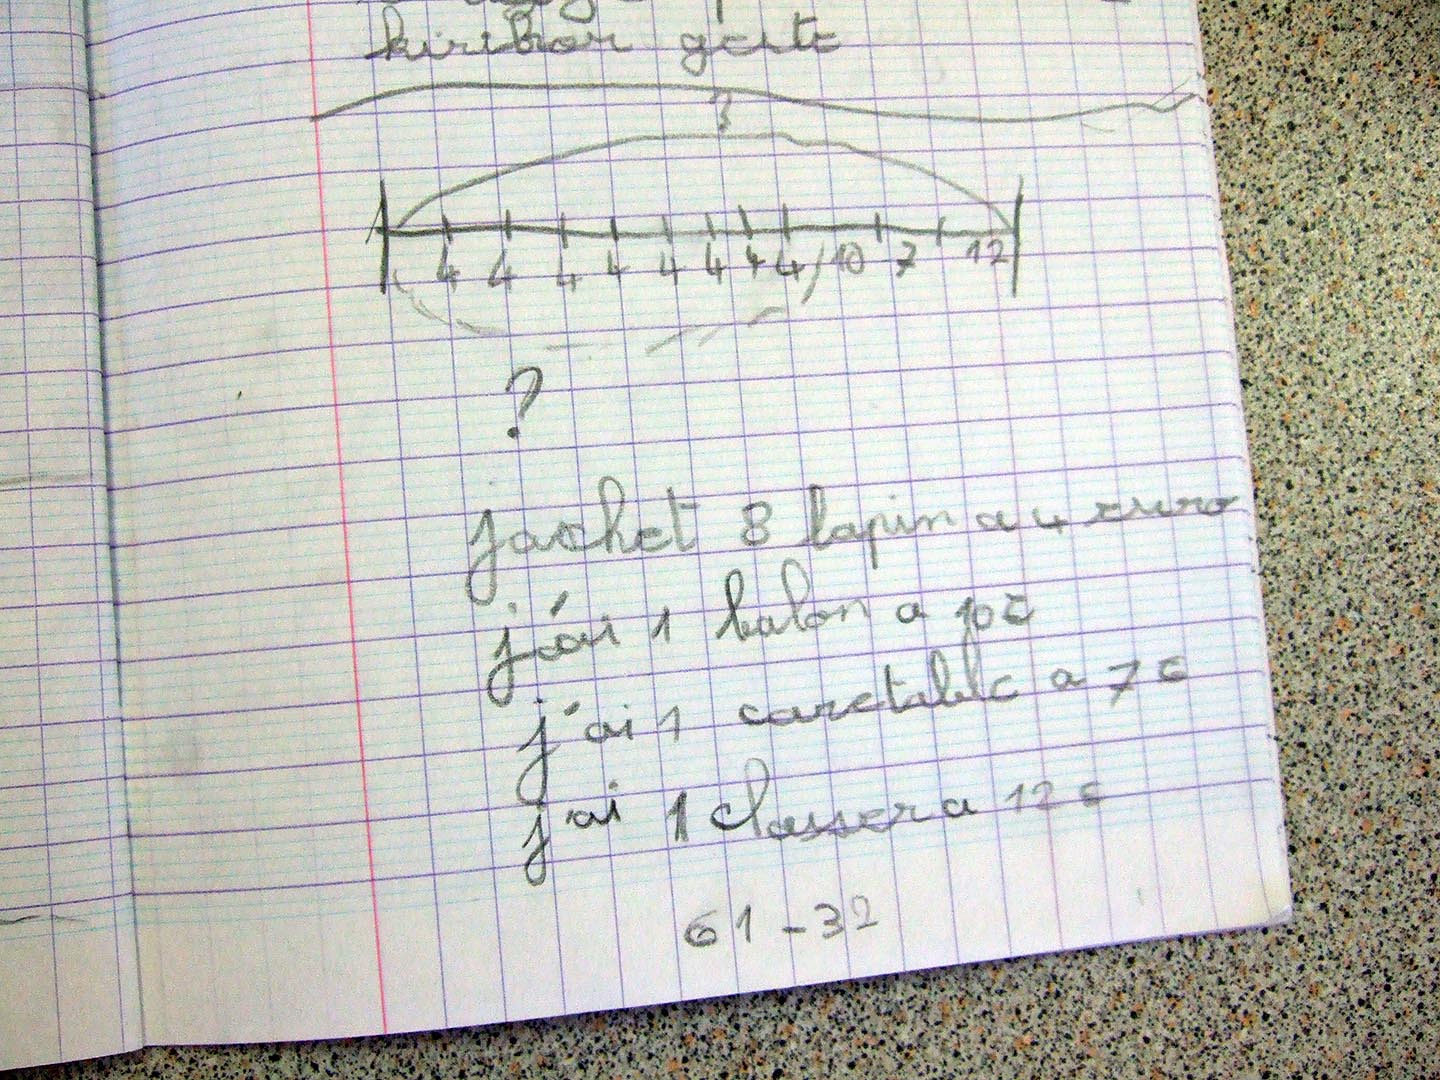 ?
4 4 4 4 4 4 4 4 / 10 7 12
?
jachet 8 lapin a 4 euro
j'ai 1 balon a 10 €
j'ai 1 caretable a 7 €
j'ai 1 classer a 12 €
61 - 32